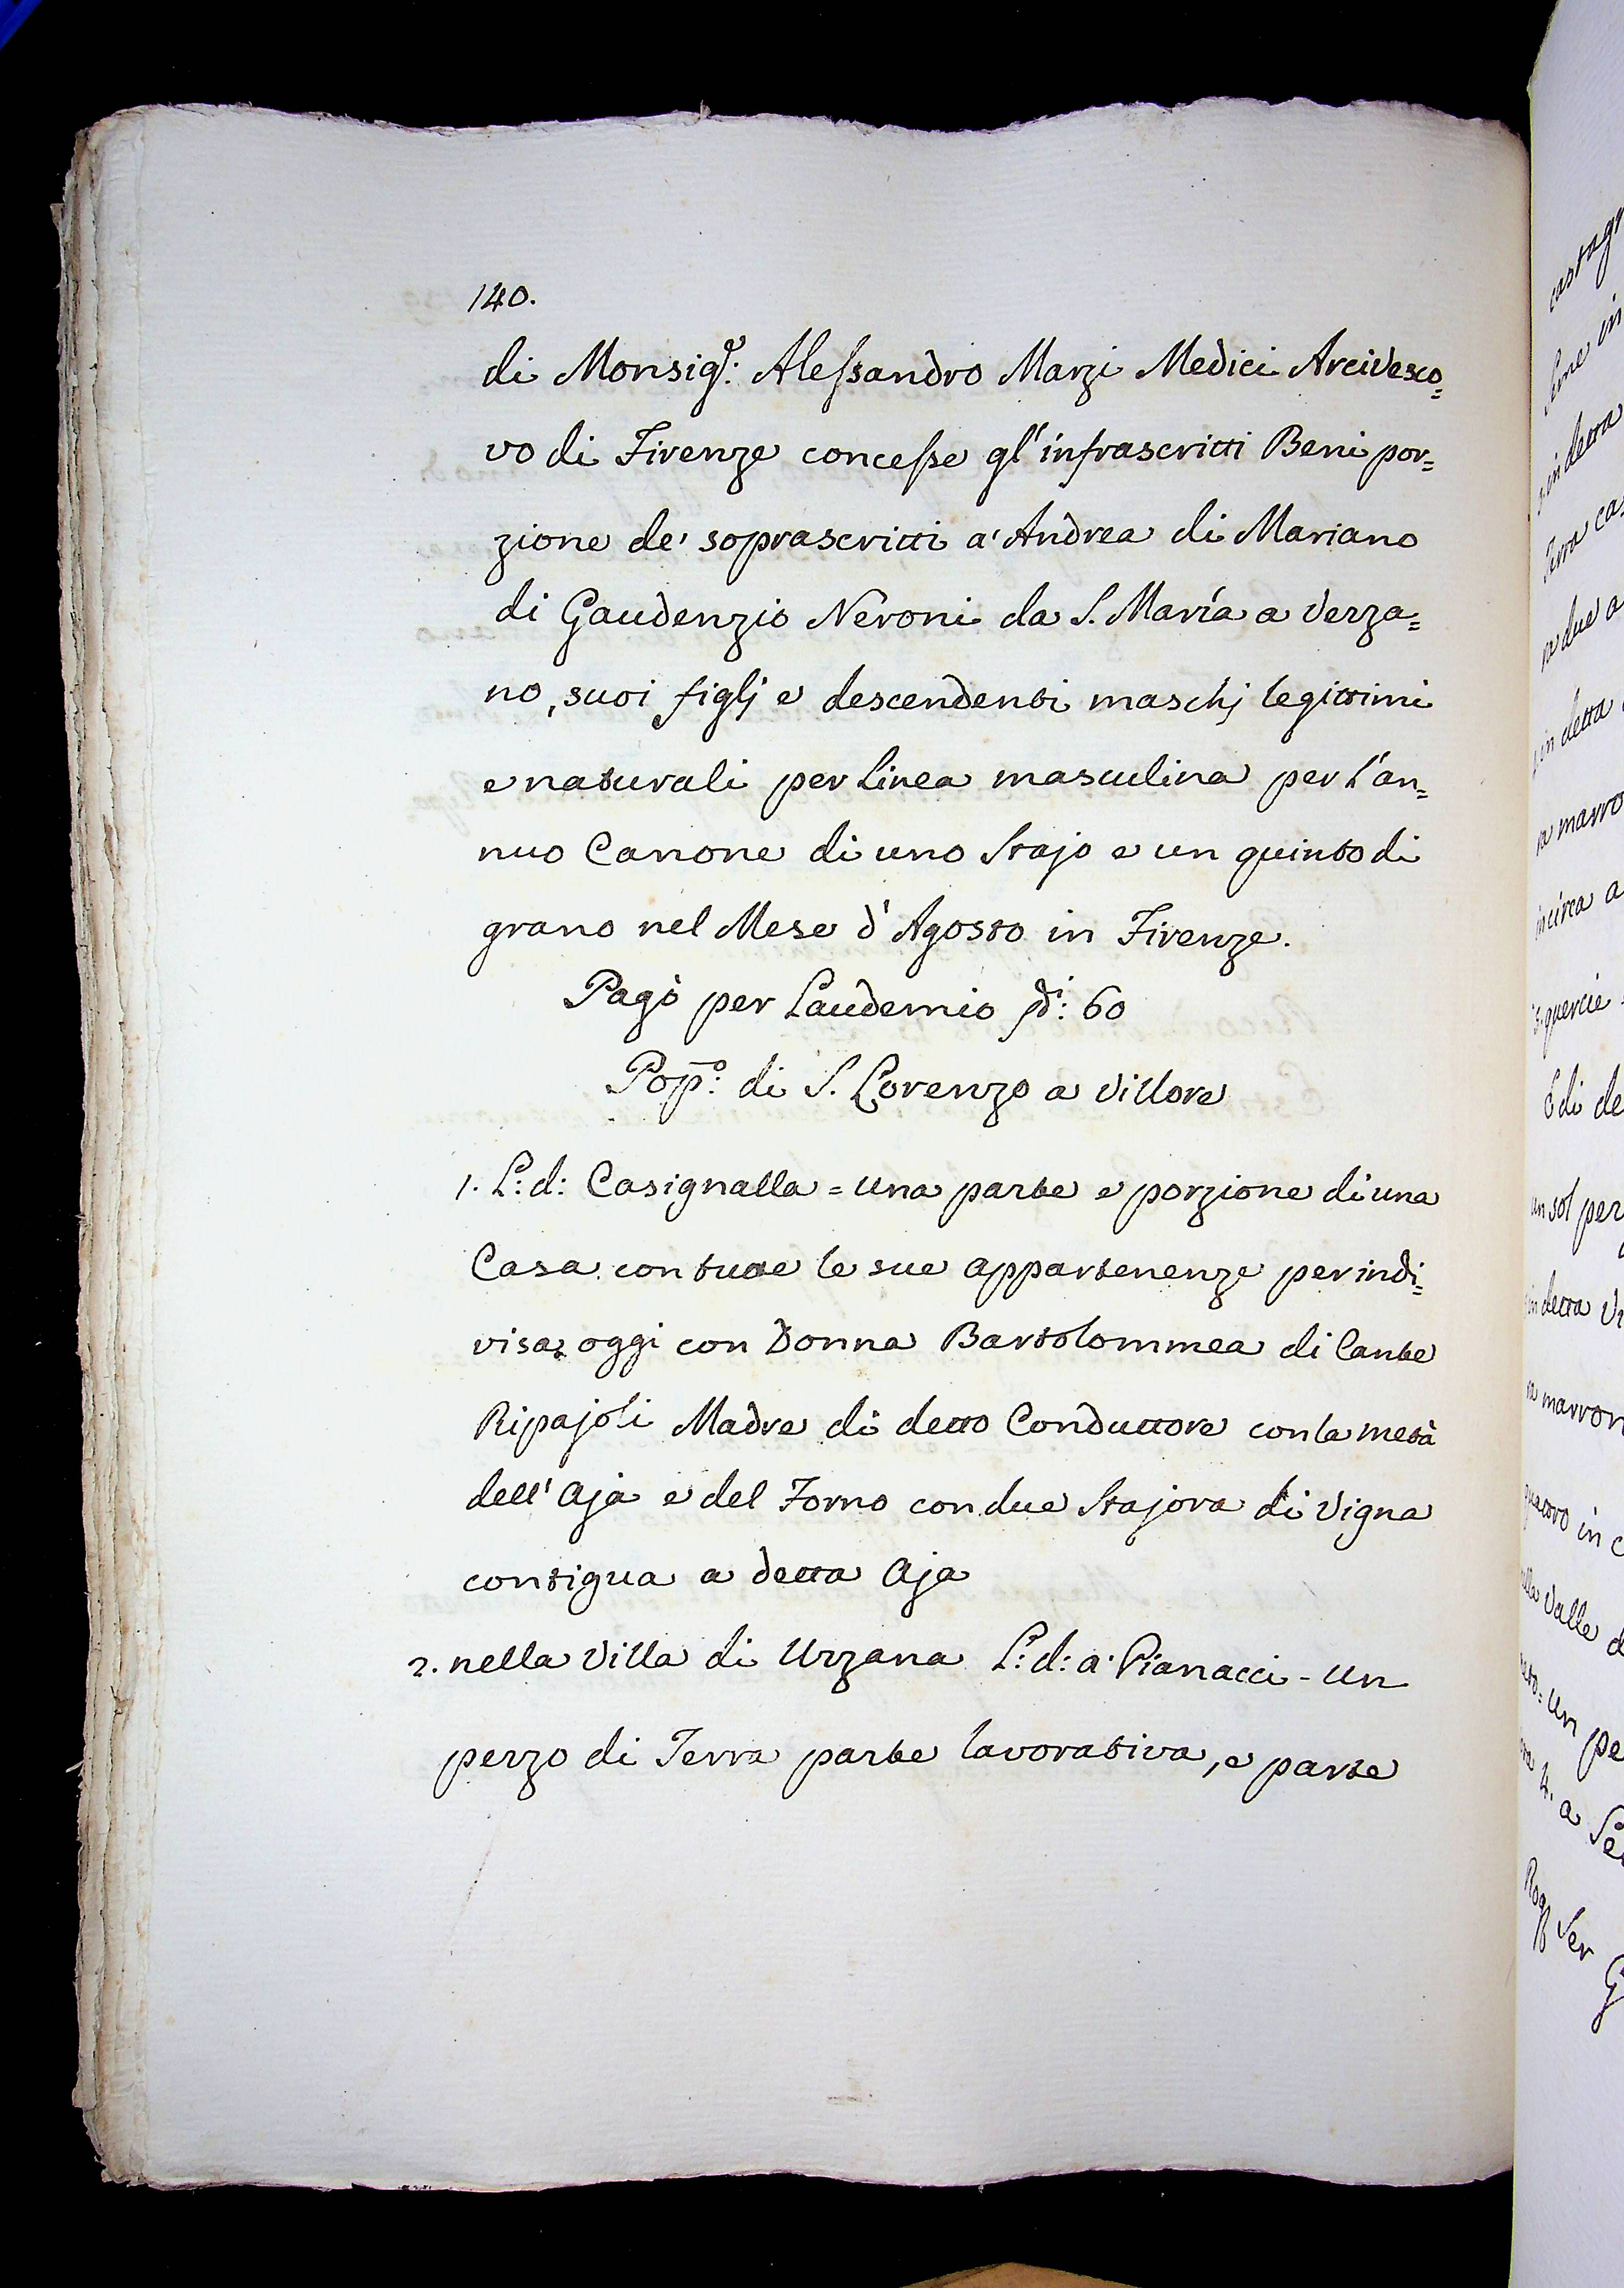 140.
di Monsigr: Alessandro Marzi Medici Arcivesco=
vo di Firenze concesse gl'infrascritti Beni por=
zione de' soprascritti a' Andrea di Mariano
di Gaudenzio Neroni da S. Maria a Verza=
no, suoi figlj e descendenti maschj legittimi
e naturali per linea masculina per l'an=
nuo Canone di uno Stajo e un quinto di
grano nel Mese d'Agosto in Firenze.
Pagò per Laudemio 60
Popo: di S. Lorenzo a Villore
1. L: d: Casignalla = una parte e porzione di una
Casa con tutte le sue appartenenze per indi=
visa, oggi con Donna Bartolommea di Cante
Ripajoli Madre di detto Conduttore con la metà
dell'Aja e del Forno con due Stajora di Vigna
contigua a detta Aja
2. nella Villa di Urzana L: d: a' Pianacci - un
pezzo di Terra parte lavorativa, e parte
castag
in
in detta
Terra cas
due a
in detta
marro
incirca a
quercie
E di de
un sol per
in detta Vi
marron
in c
Valle d
un pe
4. a Se
Rog
Ser G